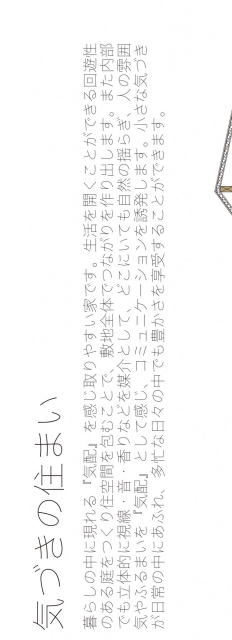 気づきの住まい
暮らしの中に現れる『気配』を感じ取りやすい家です。生活を開くことができる回遊性
のある庭をつくり住空間を包むことで、敷地全体でつながりを作り出します。また内部
でも立体的に視線・音・香りなどを媒介として、どこにいても自然の揺らぎ、人の雰囲
気やふるまいを『気配』として感じ、コミュニケーションを誘発します。小さな気づき
が日常の中にあふれ、多忙な日々の中でも豊かさを享受することができます。